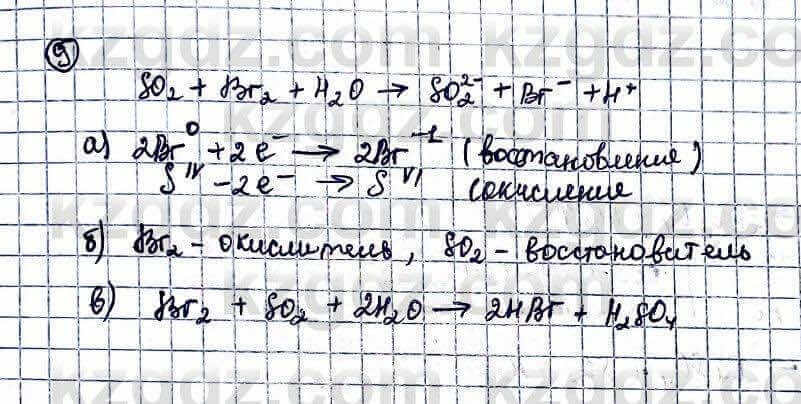 9
SO₂ + Br₂ + H₂O → SO₂²⁻ + Br⁻ + H⁺
а) 2Br⁰ + 2e⁻ → 2Br⁻¹ (восстановление)
S^IV - 2e⁻ → S^VI (окисление
б) Br₂ - окислитель, SO₂ - восстановитель
в) Br₂ + SO₂ + 2H₂O → 2HBr + H₂SO₄